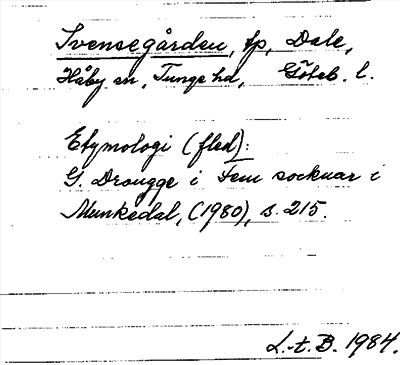 Svensegården, tp, Dale,
Håby sn, Tunge hd, Göteb. l.
Etymologi (fled):
G. Drougge i Fem socknar i
Munkedal, (1980), s. 215.
L.t.B. 1984.